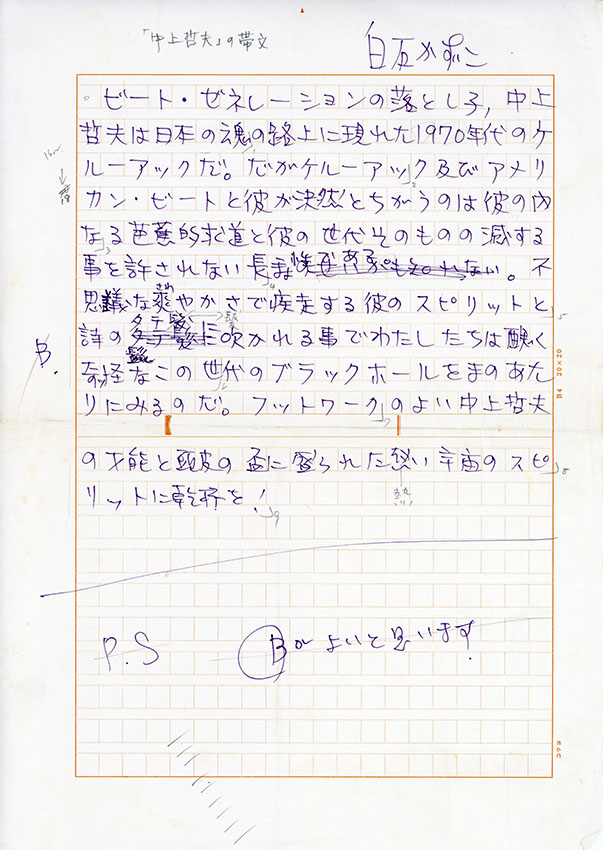 「中上哲夫」の帯文
白石かずこ
ビート・ゼネレーションの落とし子，中上
哲夫は日本の魂の路上に現れた1970年代のケ
ルーアックだ。だがケルーアック及びアメリ
カン・ビートと彼が決然とちがうのは彼の内
なる芭蕉的求道と彼の世代そのものの滅する
事を許されない長寿。不
思議な爽やかさで疾走する彼のスピリットと
さわ
詩のタテ髪に吹かれる事でわたしたちは醜く
奇怪なこの世代のブラックホールをまのあた
りにみるのだ。フットワークのよい中上哲夫
の才能と頭皮の盃に盛られた熱い宇宙のスピ
リットに乾杯を！
熱
B.
P.S
Bがよいと思います
B4 20×20